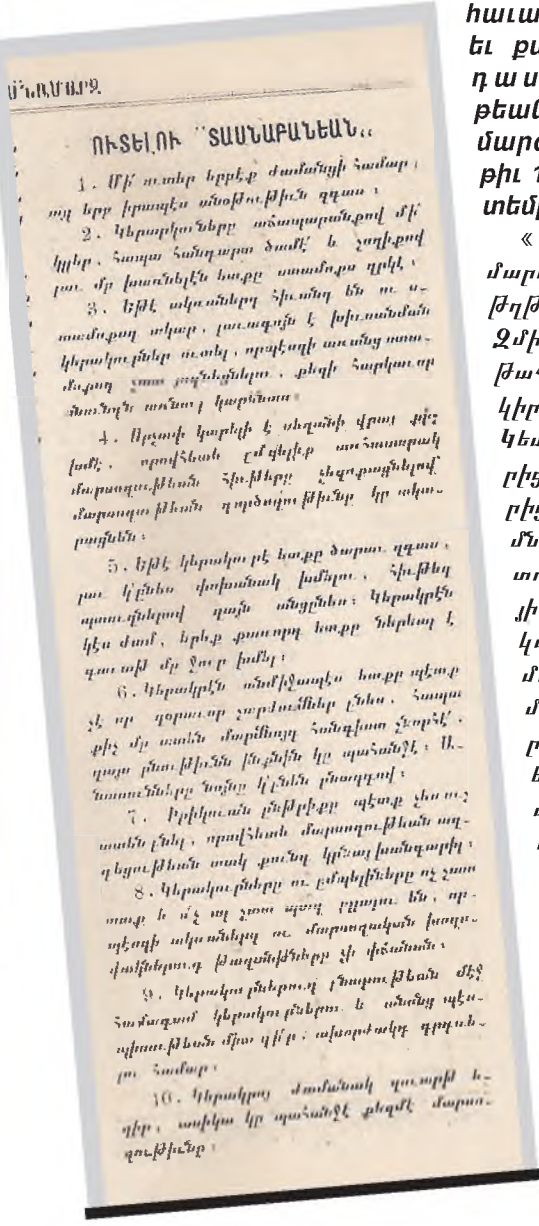 ՈՒՏԵԼՈՒ ՏԱՍՆԱԲԱՆԵԱՆ
1. Մի՛ ուտեր երբէք ժամանցի համար,
այլ երբ իրապէս անօթութիւն զգաս։
2. Կերակուրները աճապարանքով մի՛
կլլեր, հապա հանդարտ ծամէ՛ և շողիքով
լաւ մը խառնելէն ետքը ստամոքս ղրկէ։
3. Եթէ ակռաներդ հիւանդ են ու ս-
տամոքսդ տկար, լաւագոյն է խիւսանման
կերակուրներ ուտել, որպէսզի առանց ստա-
մոքսդ շատ յոգնեցնելու, քեզի հարկաւոր
սնունդն առնուլ կարենաս։
4. Որչափ կարելի է սեղանի վրայ քիչ
խմէ, որովհետև ըմպելիք առհասարակ
մարսողութեան հիւթերը չեզոքացնելով
մարսողութեան գործողութիւնը կը տկա-
րացնեն։
5. Եթէ կերակուրէ ետքը ծարաւ զգաս,
լաւ կ՚ընես փոխանակ խմելու, հիւթեղ
պտուղներով զայն անցընես։ Կերակրէն
կէս ժամ, երեք քառորդ ետքը ներելի է
գաւաթ մը ջուր խմել։
6. Կերակրէն անմիջապէս ետքը պէտք
չէ որ զօրաւոր շարժումներ ընես, հապա
քիչ մը ատեն մարմնոյդ հանգիստ շնորհէ՛,
զայս բնութիւնն ինքնին կը պահանջէ։ Ա-
նասունները նոյնը կ՚ընեն բնազդով։
7. Երիկուան ընթրիքը պէտք չես ուշ
ատեն ընել, որովհետև մարսողութեան ազ-
դեցութեան տակ քունդ կրնայ խանգարիլ։
8. Կերակուրները ու ըմպելիները ոչ շատ
տաք և ո՛չ ալ շատ պաղ ըլլալու են, որ-
պէսզի ակռաներդ ու մարսողական խողո-
վակներուդ թաղանթները չի փճանան։
9. Կերակուրներուդ ընտրութեան մէջ
համադամ կերակուրներու և անոնց պէս-
պիսութեան միտ դի՛ր, ախորժակդ գրգռե-
լու համար։
10. Կերակրոյ ժամանակ զուարթ ե-
ղիր, ասիկա կը պահանջէ քեզմէ մարսո-
ղութիւնը։
հաւա
եւ քա
դաս
թեան
մարզ
թիւ
տեմ
«
մար
թղթ
Զմի
թա
կիր
կես
րից
րից
մն